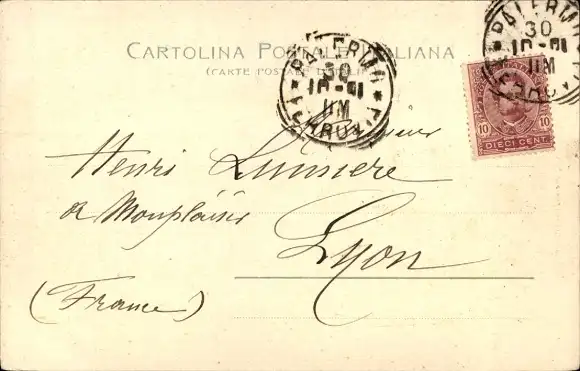 CARTOLINA POSTALE ITALIANA
(CARTE POSTALE D'ITALIE)
PALERMO
30
10-01
11M
PALERMO
30
10-01
11M
10 10
DIECI CENT
Monsieur
Henri Lumiere
à Monplaisir
Lyon
(France)